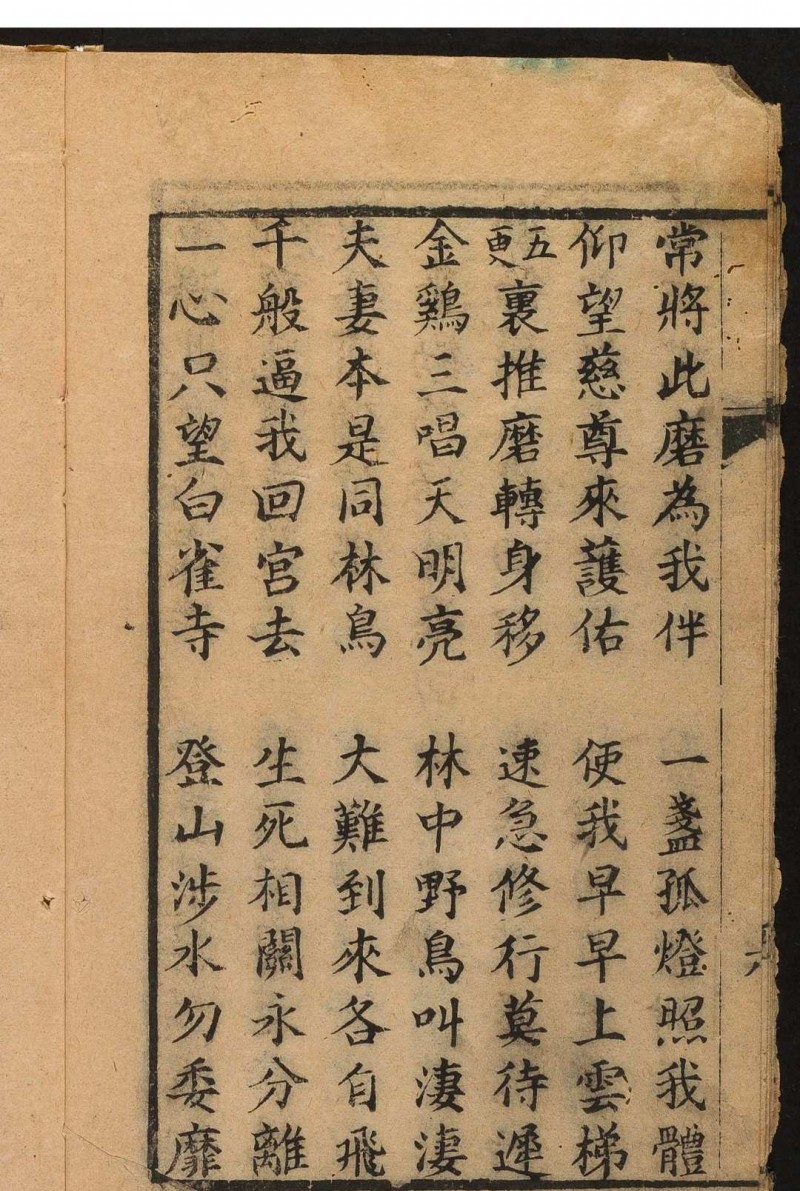 常將此磨為我伴　一盞孤燈照我體
仰望慈尊來護佑　便我早早上雲梯
五更裏推磨轉身移　速急修行莫待遲
金鷄三唱天明亮　林中野鳥叫淒淒
夫妻本是同林鳥　大難到來各自飛
千般逼我回宮去　生死相關永分離
一心只望白雀寺　登山涉水勿委靡